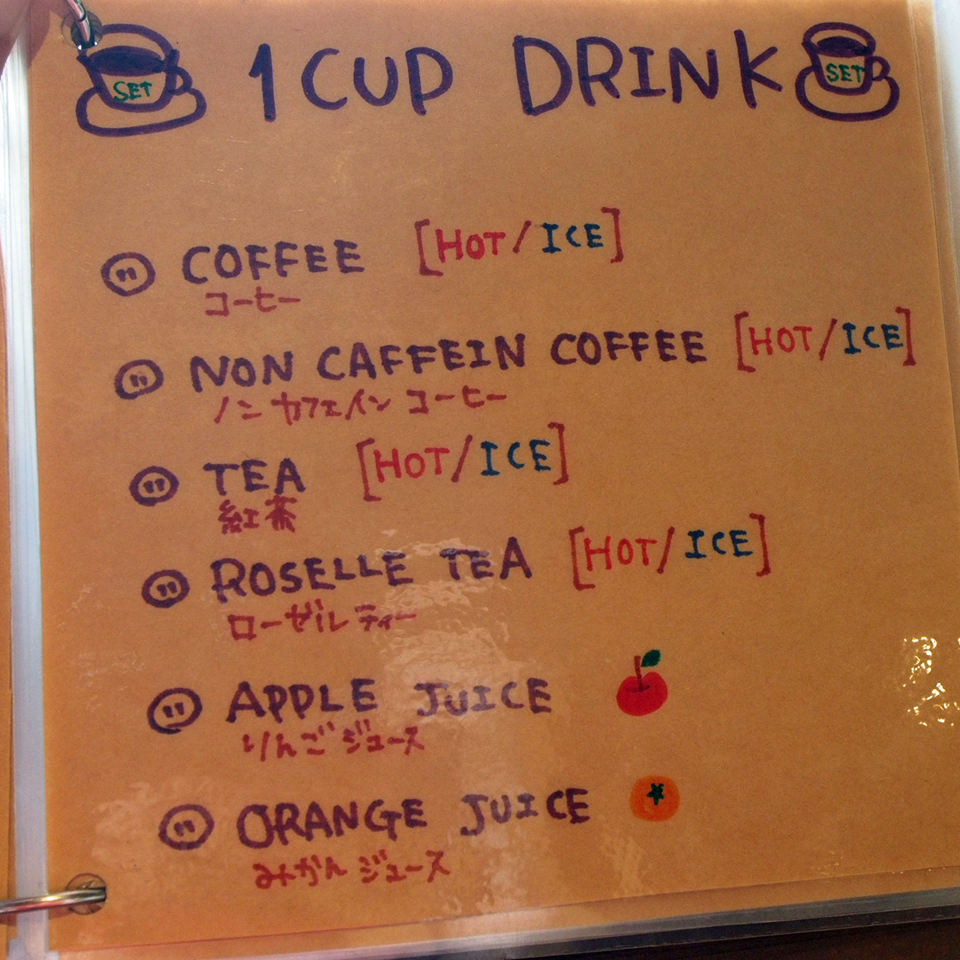 SET 1 CUP DRINK SET
COFFEE [HOT/ICE]
コーヒー
NON CAFFEIN COFFEE [HOT/ICE]
ノンカフェイン コーヒー
TEA [HOT/ICE]
紅茶
ROSELLE TEA [HOT/ICE]
ローゼルティー
APPLE JUICE
りんごジュース
ORANGE JUICE
みかんジュース